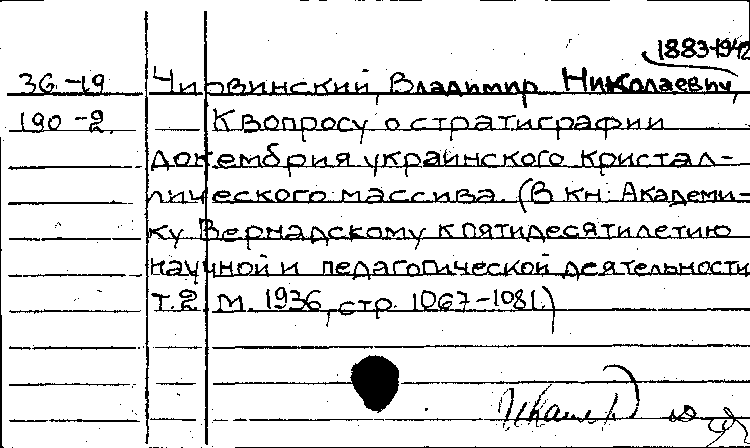 1883-1942
36-19 Чирвинский, Владимир Николаевич,
190-2. К вопросу о стратиграфии
докембрия украинского кристал-
лического массива. (В кн: Академи-
ку Вернадскому к пятидесятилетию
научной и педагогической деятельности
т.2 М. 1936, стр. 1067-1081.)